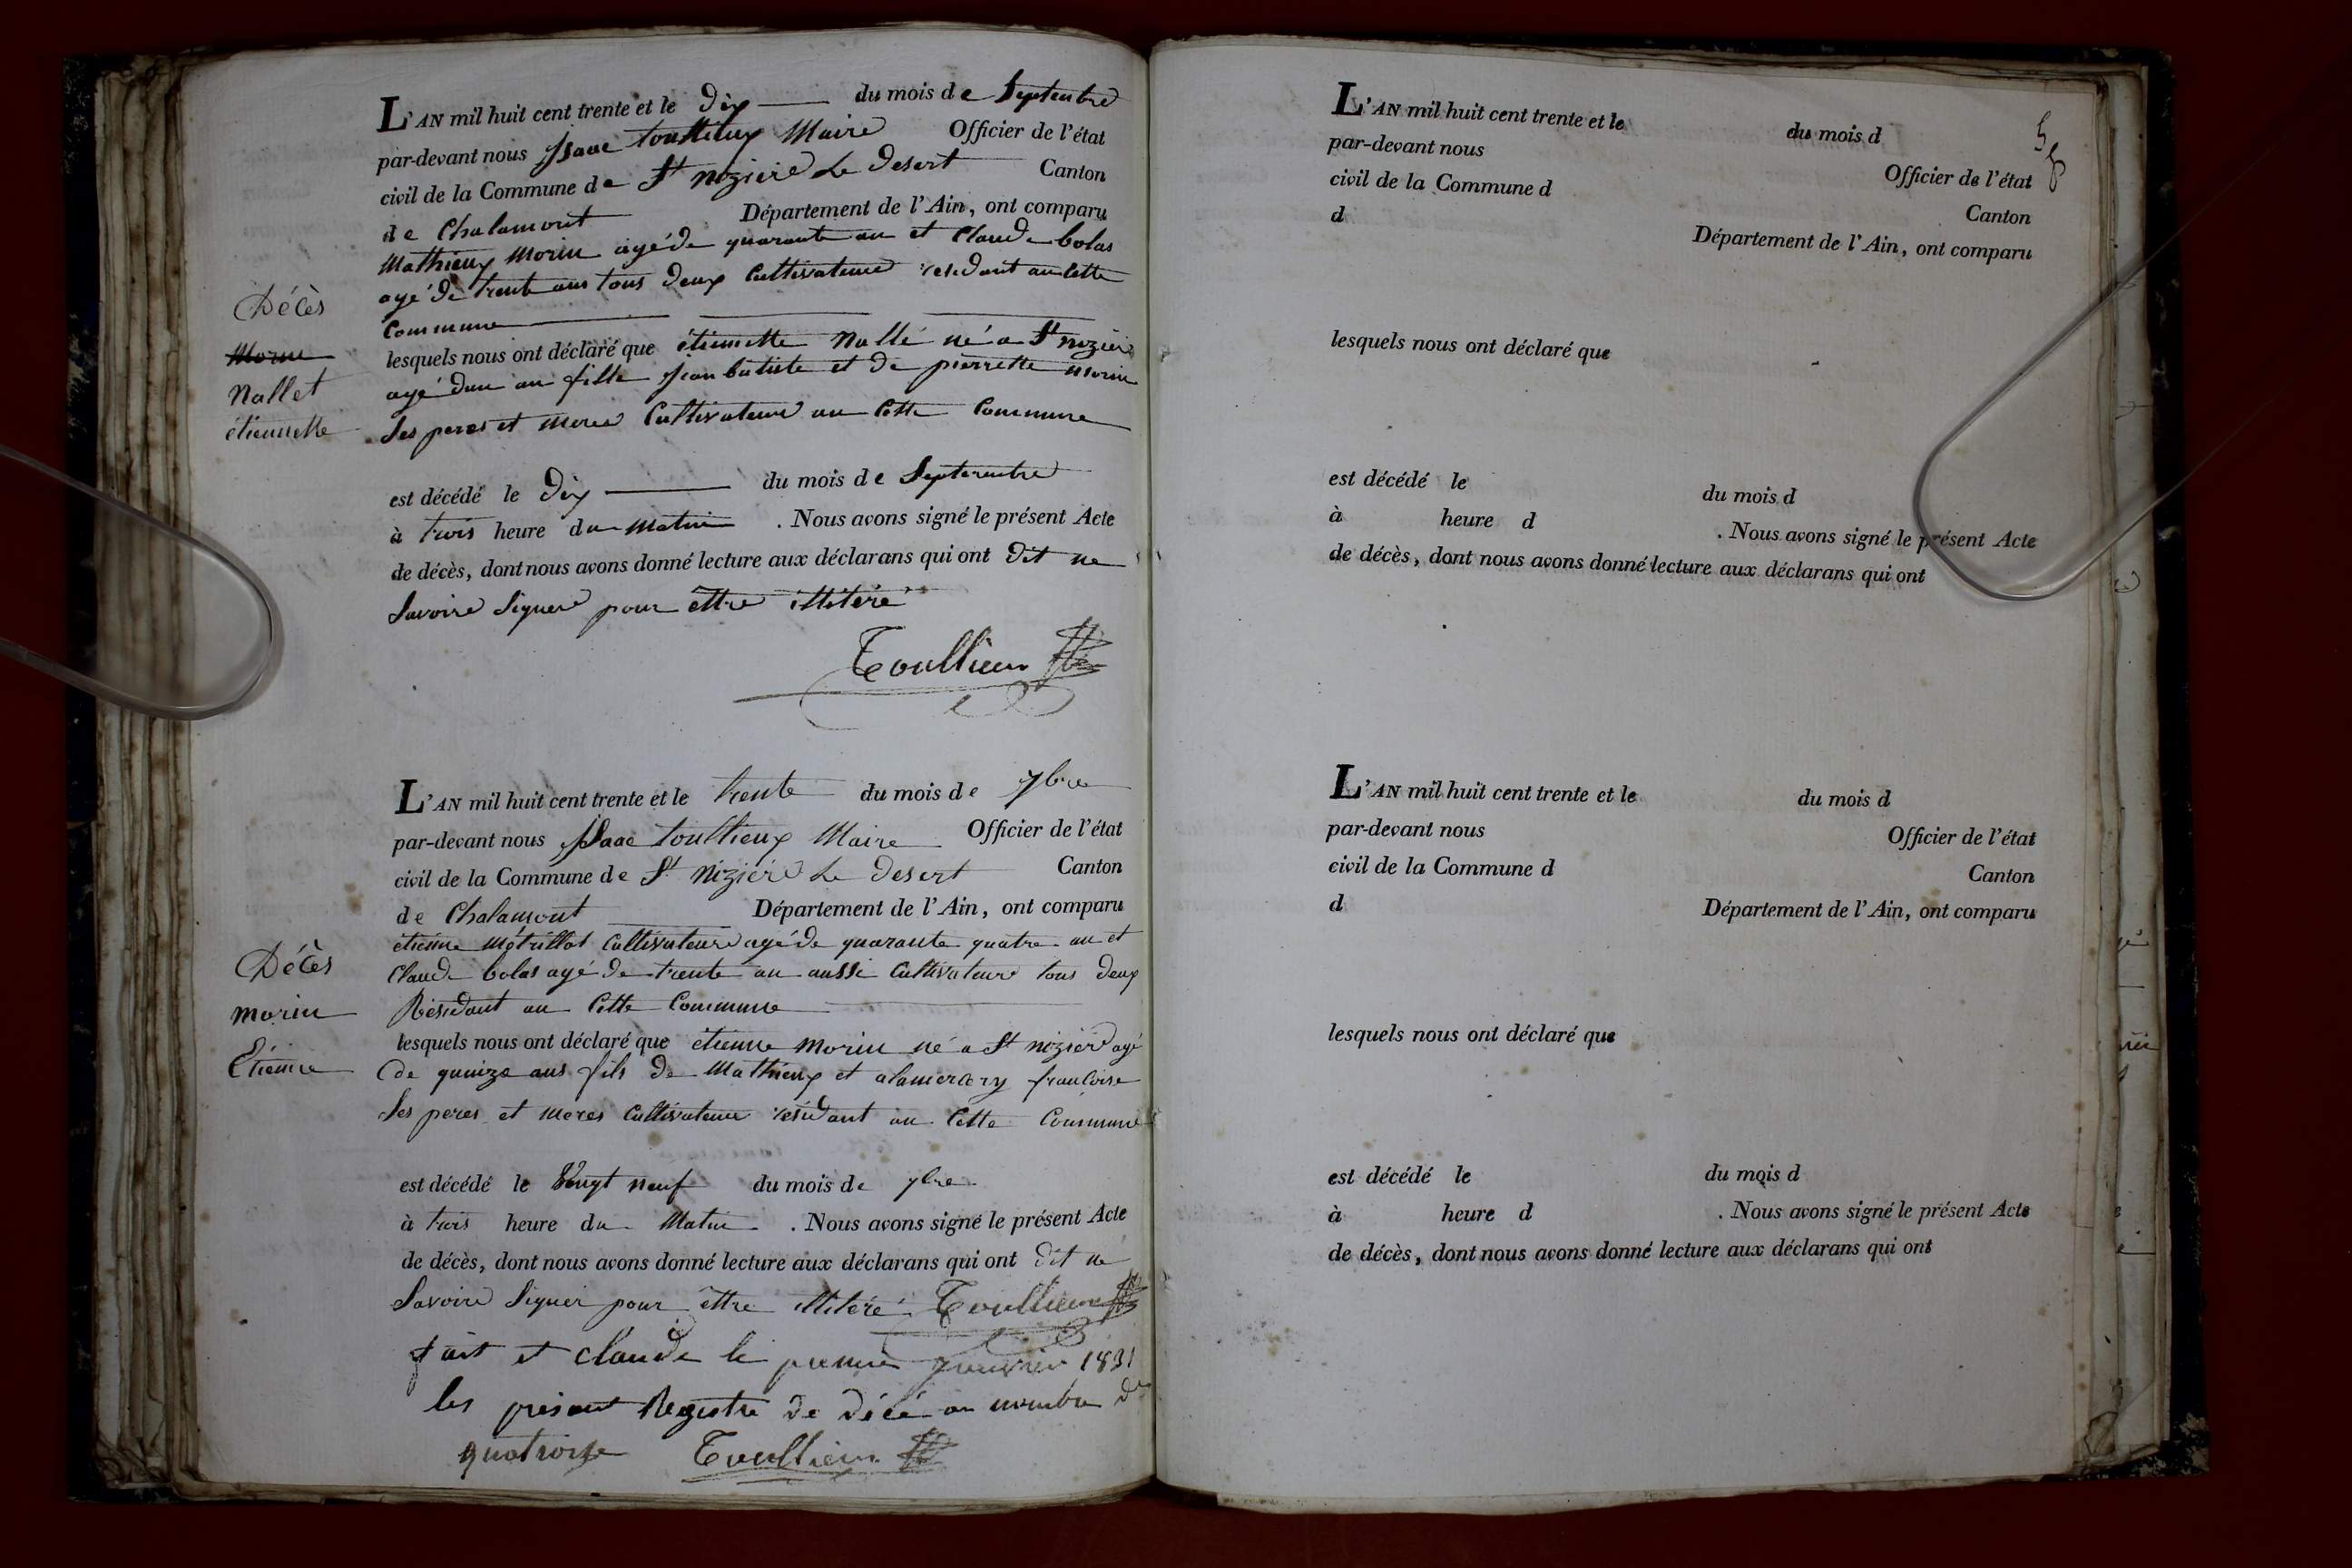 L'AN mil huit cent trente et le Dix du mois de Septembre
par-devant nous Isaac toullieux Maire Officier de l'état
civil de la Commune de St nizier Le Desert Canton
de Chalamont Département de l'Ain, ont comparu
Mathieux Morin agé de quarante an et Claude bolas
agé de trente ans tous deux Cultivateur residant an cette
Commune
Décès
Morin
Nallet
étiennette
lesquels nous ont déclaré que étiennette Nallé né a St nizier
agé dun an fille Jean batiste et de pierrette morin
Ses peres et meres Cultivateur an Cette Commune
est décédé le Dix du mois de Septembre
à trois heure du Matin . Nous avons signé le présent Acte
de décès, dont nous avons donné lecture aux déclarans qui ont Dit ne
Savoire Signer pour ettre illitéré
Toullieux
L'AN mil huit cent trente et le trente du mois de 7bre
par-devant nous Isaac toullieux Maire Officier de l'état
civil de la Commune de St Nizier Le Desert Canton
de Chalamont Département de l'Ain, ont comparu
étienne Métrillot Cultivateur agé de quarante quatre an et
Claude bolas agé de trente an aussi Cultivateur tous deux
Résidant an Cette Commune
Décès
morin
Etienne
lesquels nous ont déclaré que étienne morin né a St nizier agé
de quinze ans fils de Mathieux et françoise
Ses peres et meres Cultivateur résidant an Cette Commune
est décédé le Vingt neuf du mois de 7bre
à trois heure du Matin . Nous avons signé le présent Acte
de décès, dont nous avons donné lecture aux déclarans qui ont dit ne
Savoire Signer pour ettre illitéré Toullieux
fait et claude le premier janvier 1831
les présant Registre de décé au nombre de
quatorze Toullieux
L'AN mil huit cent trente et le du mois d
par-devant nous Officier de l'état
civil de la Commune d Canton
d Département de l'Ain, ont comparu
lesquels nous ont déclaré que
est décédé le du mois d
à heure d . Nous avons signé le présent Acte
de décès, dont nous avons donné lecture aux déclarans qui ont
L'AN mil huit cent trente et le du mois d
par-devant nous Officier de l'état
civil de la Commune d Canton
d Département de l'Ain, ont comparu
lesquels nous ont déclaré que
est décédé le du mois d
à heure d . Nous avons signé le présent Acte
de décès, dont nous avons donné lecture aux déclarans qui ont